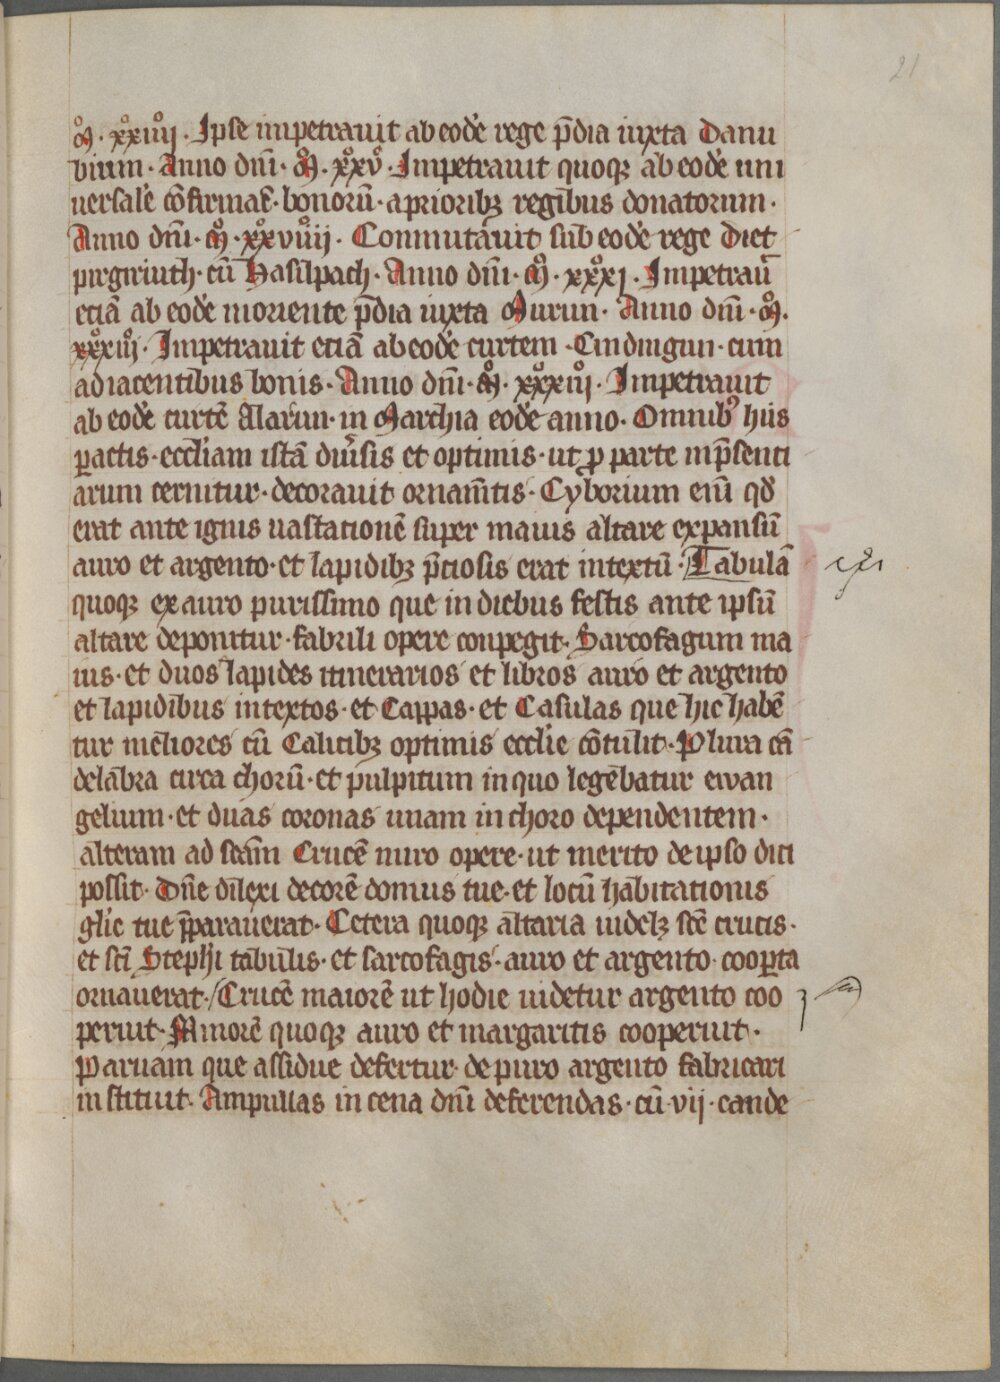 21
m̊. xx̊iiii̊. Ipse impetrauit ab eodē rege p̄dia iuxta Danu
bium. Anno dn̄i. m̊. xx̊v̊. Impetrauit quoqꝫ ab eodē uni
uersalē cōfirmat̄. bonorū. a prioribꝫ regibus donatorum.
Anno dn̄i. m̊. xx̊viiii̊. Conmutauit sub eodē rege Diet
pirgiriuth. cū Hasilpach. Anno dn̄i. m̊. xxx̊i. Impetrau̅
etiā ab eodē moriente p̄dia iuxta Murun. Anno dn̄i. m̊.
xxx̊iii̊. Impetrauit etiā ab eodē curtem Cindingun. cum
adiacentibus bonis. Anno dn̄i. m̊. xxx̊iiii̊. Impetrauit
ab eodē curtē Alarun. in Marchia eodē anno. Omnibꝰ hiis
ꝑactis. eccl̄iam istā diu̅sis et optimis. ut ꝓ parte inp̄senti
arum cernitur. decorauit ornam̄tis. Cyborium eni̅ qd̄
erat ante ignis uastationē super maius altare expansū
auro et argento. et lapidibꝫ p̄ciosis erat intextū. Tabulā
quoqꝫ ex auro purissimo que in diebus festis ante ipsū
altare deponitur. fabrili opere conpegit. Sarcofagum ma
ius. et duos lapides itinerarios et libros auro et argento
et lapidibus intextos. et Cappas. et Casulas que hic habē
tur meliores cū Calicibꝫ optimis eccl̄ie cōtulit. Plura cā
delabra circa chorū. et pulpitum in quo legebatur ewan
gelium. et duas coronas unam in choro dependentem.
alteram ad scām Crucē miro opere. ut merito de ipso dici
possit. Dn̄e dilexi decorē domus tue. et locū habitationis
gl̄ie tue p̄parauerat. Cetera quoqꝫ altaria uidelꝫ scē crucis.
et sc̄i Steph̄i tabulis. et sarcofagis. auro et argento cooꝑta
ornauerat. Crucē maiorē ut hodie uidetur argento coo
periut. Minorē quoqꝫ auro et margaritis cooperiut.
Paruam que assidue defertur. de puro argento fabricari
instituit. Ampullas in cena dn̄i deferendas. cū. vij. cande